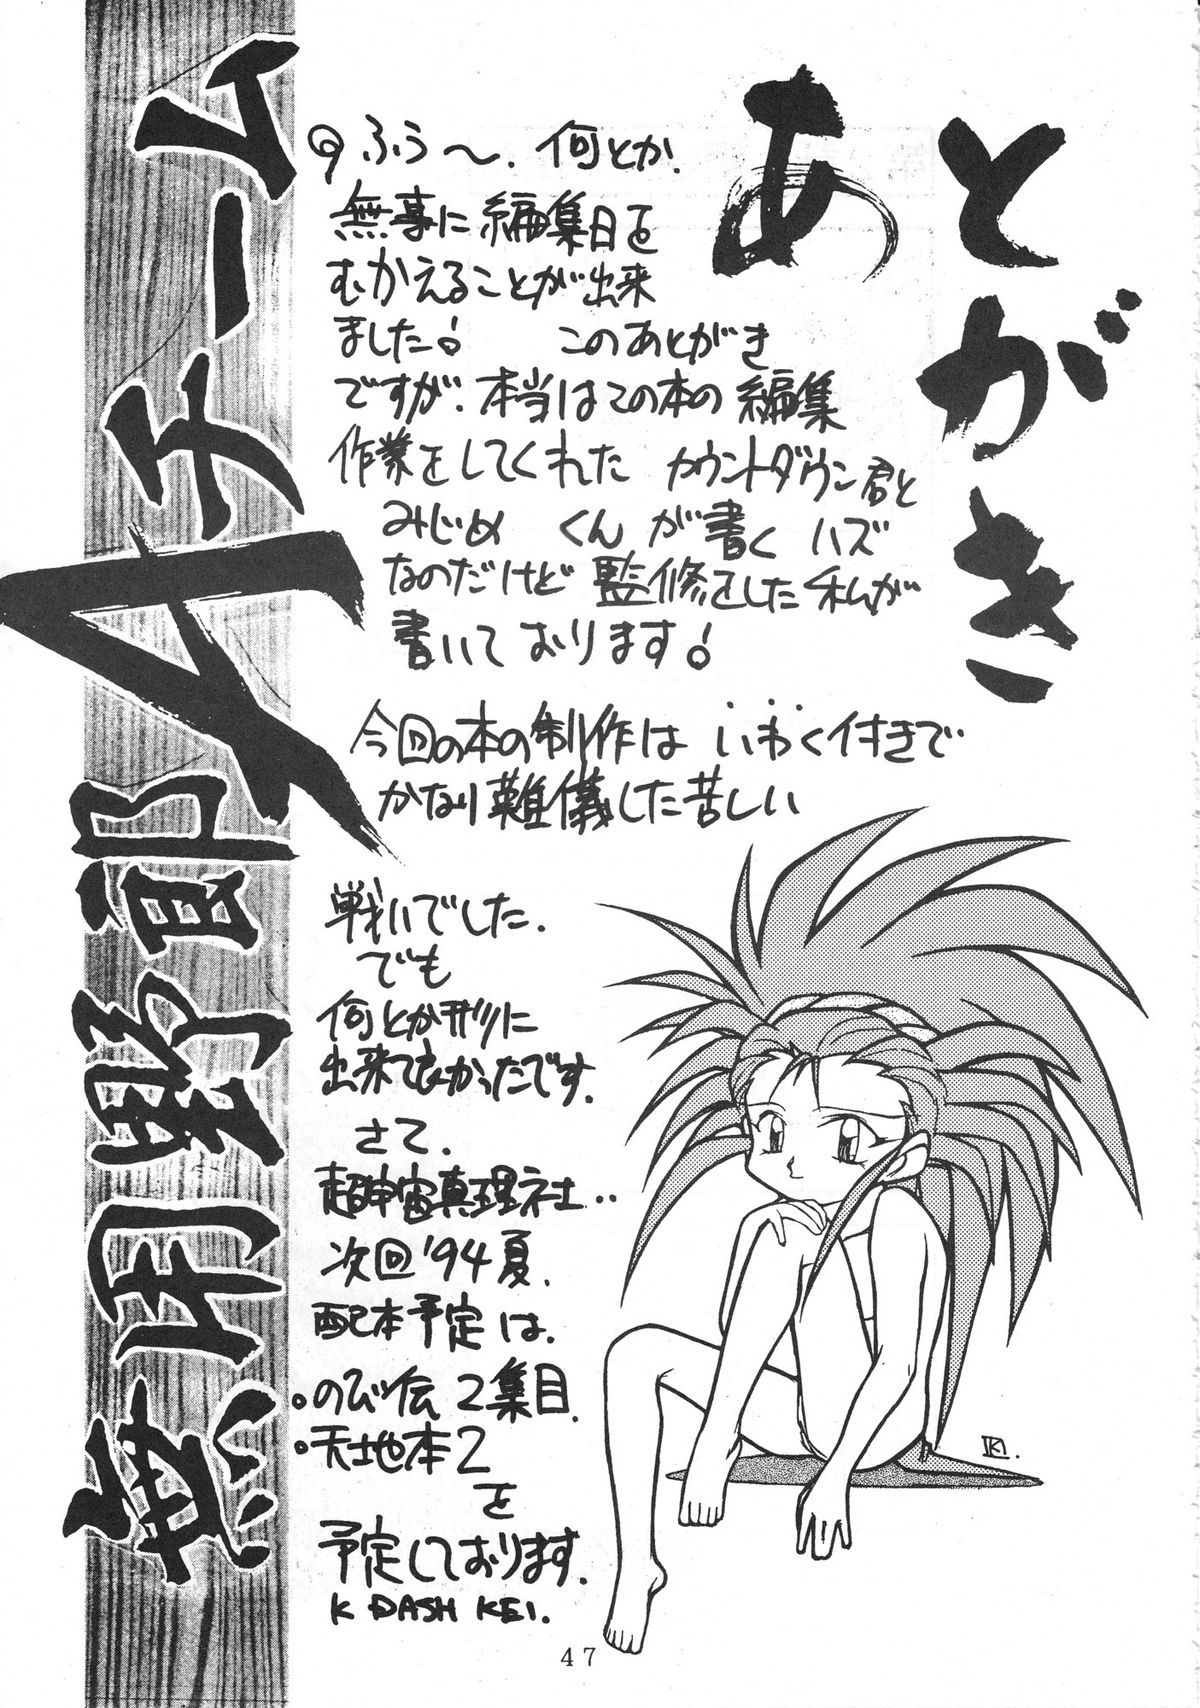 あとがき
ふう〜. 何とか.
無事に編集日を
むかえることが出来
ました! このあとがき
ですが. 本当はこの本の編集
作業をしてくれた カウントダウン君と
みじめ くん が書く ハズ
なのだけど 監修をした私が
書いております!
今回の本の制作は いわく付きで
かなり難儀した苦しい
戦いでした.
でも
何とか形に
出来て良かったです.
さて.
超宇宙真理社‥
次回'94夏.
配本予定は.
•のび伝 2集目.
•天地本2
を
予定しております.
K DASH KEI.
熱用野郎Aチーム
K.
47